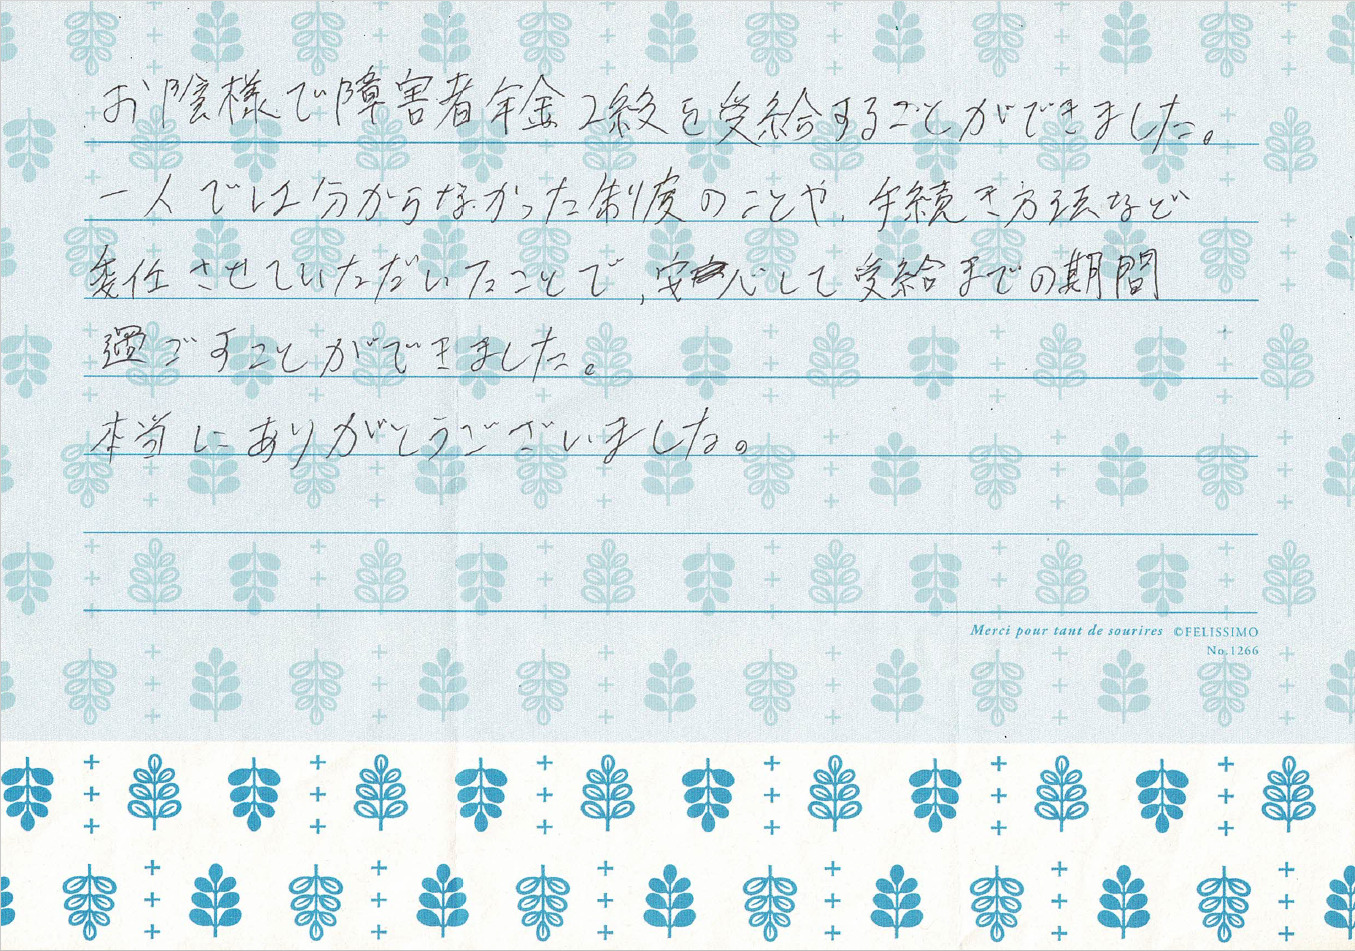 お陰様で障害者年金2級を受給することができました。
一人では分からなかった制度のことや、手続き方法など
委任させていただいたことで、安心して受給までの期間
過ごすことができました。
本当にありがとうございました。
Merci pour tant de sourires ©FELISSIMO
No.1266